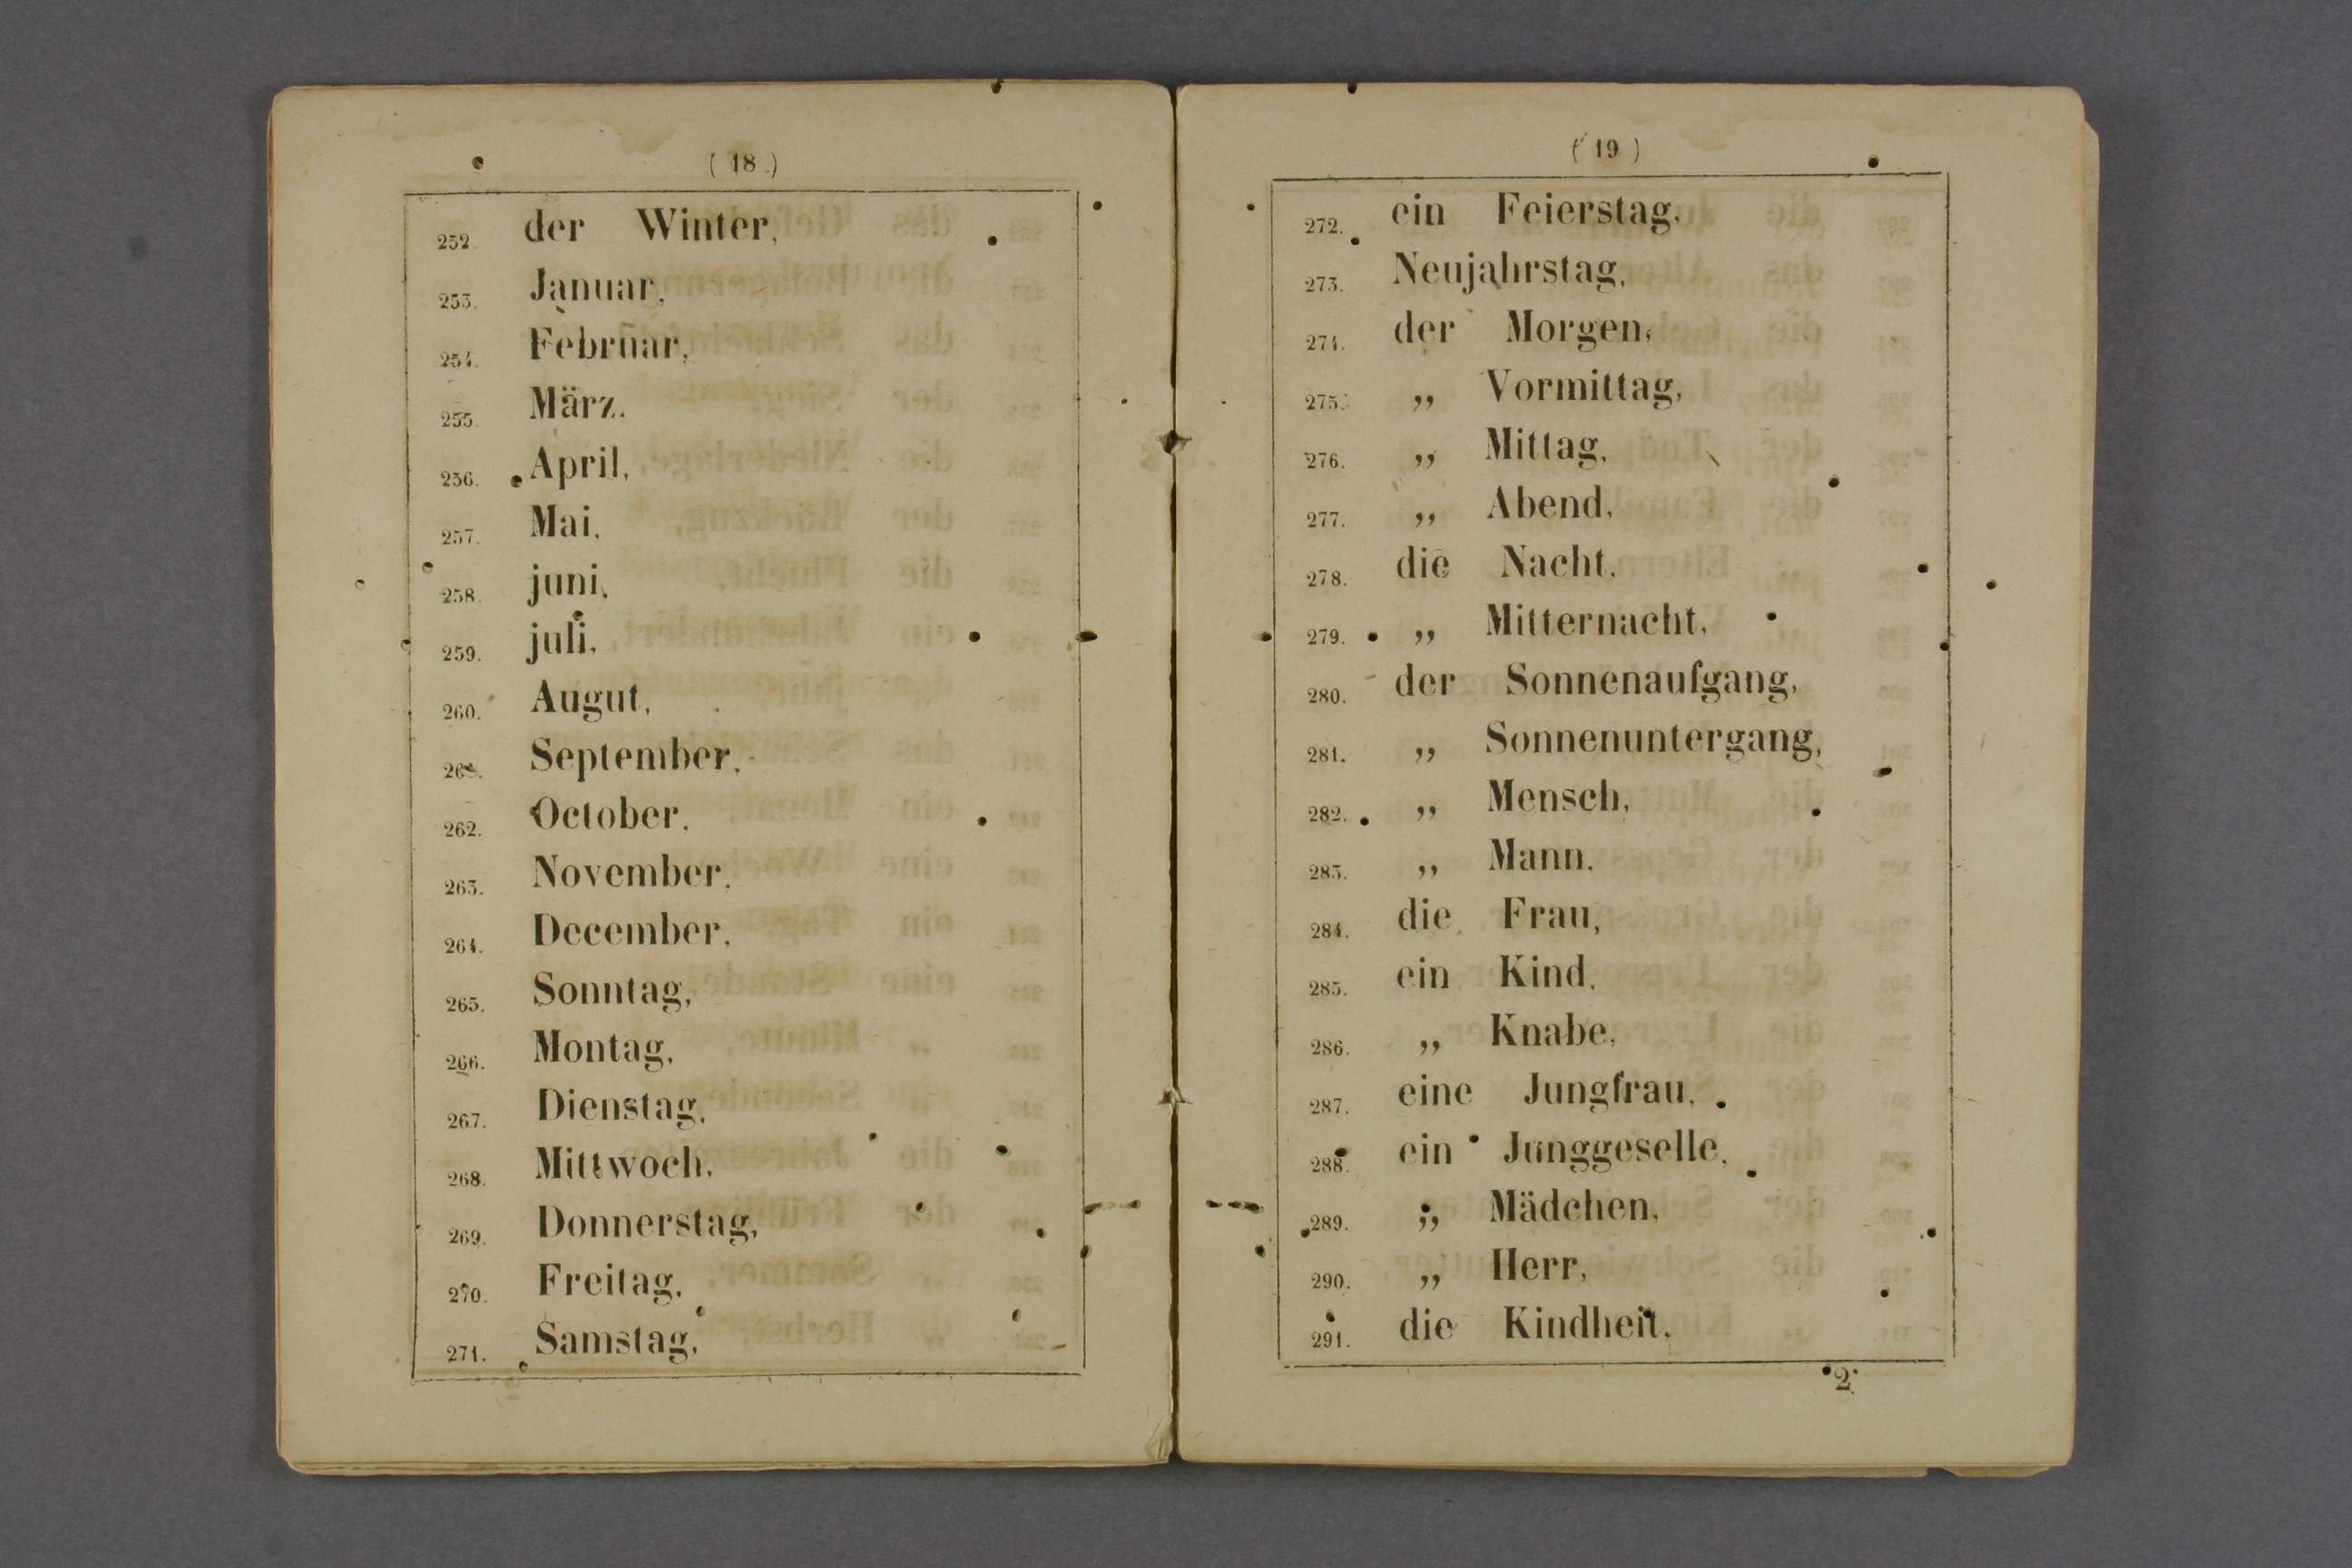 ( 18 )
252. der Winter,
253. Januar,
254. Februar,
255. März.
256. April,
257. Mai,
258. juni,
259. juli,
260. Augut,
September,
262. October,
263. November,
264. December,
265. Sonntag,
266. Montag,
267. Dienstag,
268. Mittwoch,
269. Donnerstag,
270. Freitag,
271. Samstag,
( 19 )
272. ein Feierstag,
273. Neujahrstag,
274. der Morgen,
275. „ Vormittag,
276. „ Mittag,
277. „ Abend,
278. die Nacht,
279. „ Mitternacht,
280. der Sonnenaufgang,
281. „ Sonnenuntergang,
282. „ Mensch,
283. „ Mann,
284. die Frau,
285. ein Kind,
286. „ Knabe,
287. eine Jungfrau,
288. ein Junggeselle,
289. „ Mädchen,
290. „ Herr,
291. die Kindheit,
2